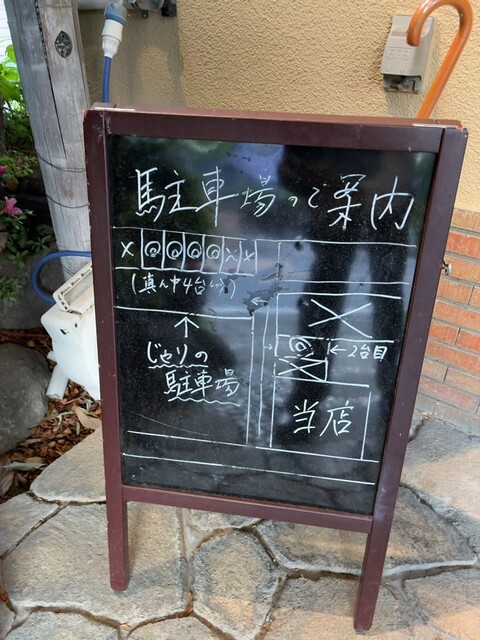 駐車場のご案内
× ◎ ◎ ◎ ◎ × ×
(真ん中4台分)
←
↑
×
◎ ←2台目
×
じゃりの
駐車場
当店